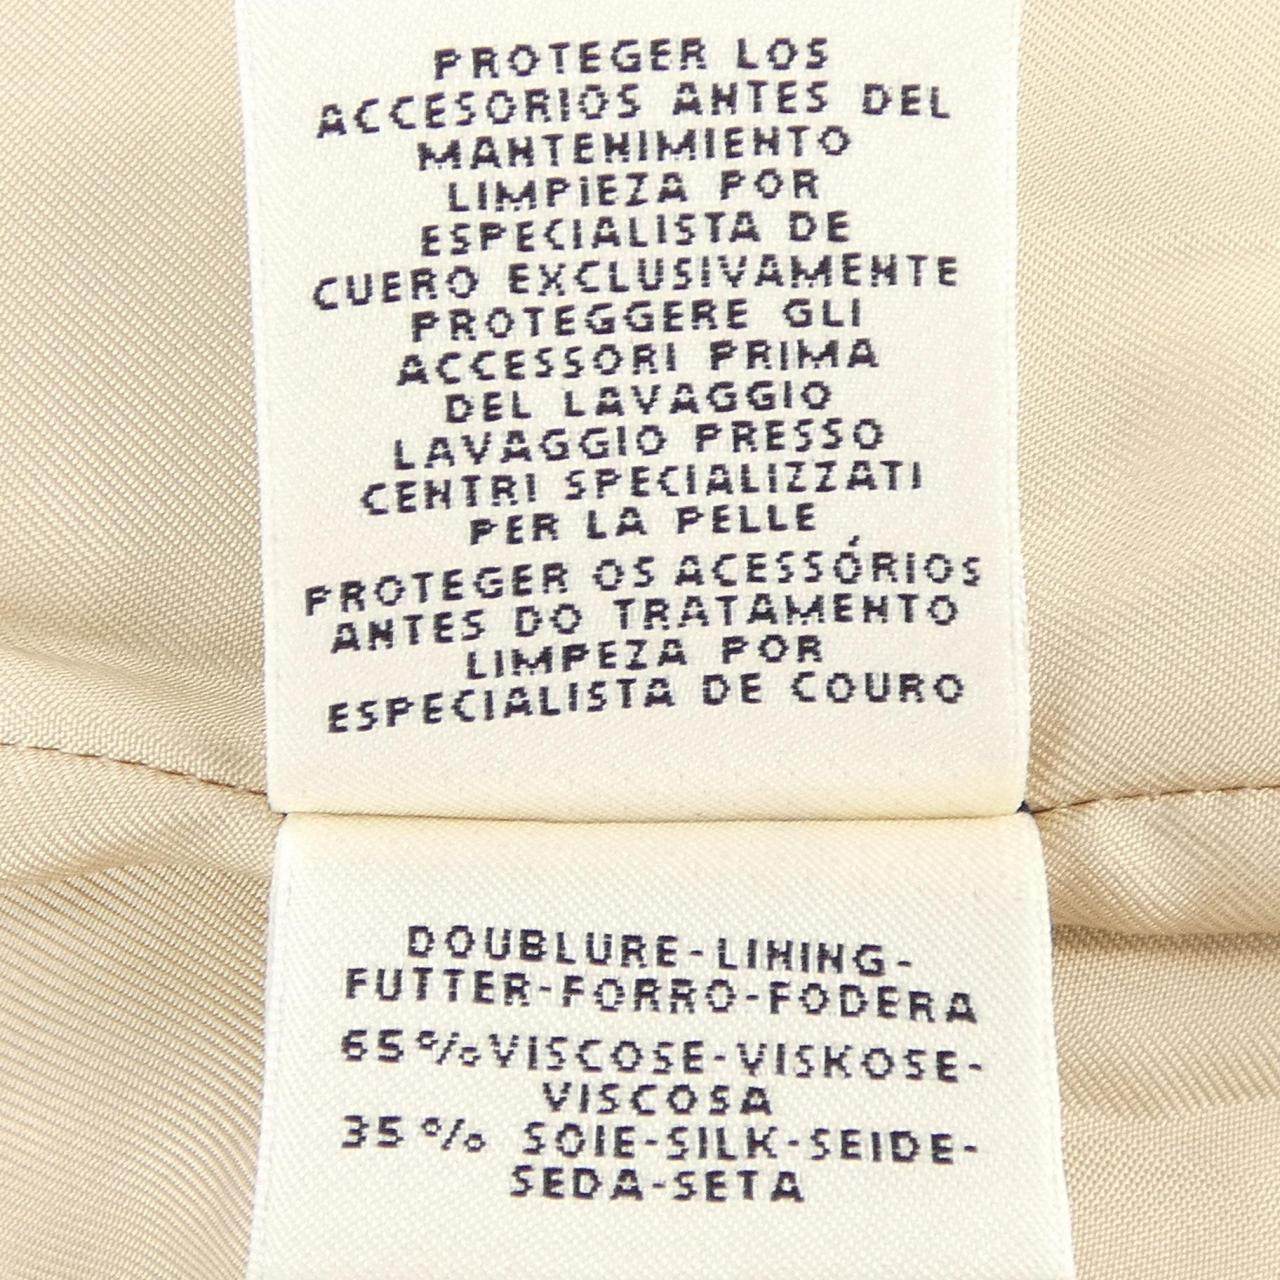 PROTEGER LOS
ACCESORIOS ANTES DEL
MANTENIMIENTO
LIMPiEZA POR
ESPECIALISTA DE
CUERO EXCLUSIVAMENTE
PROTEGGERE GLI
ACCESSORI PRIMA
DEL LAVAGGIO
LAVAGGIO PRESSO
CENTRI SPECIALIZZATI
PER LA PELLE
PROTEGER OS ACESSÓRIOS
ANTES DO TRATAMENTO
LIMPEZA POR
ESPECIALISTA DE COURO
DOUBLURE-LINING-
FUTTER-FORRO-FODERA
65%VISCOSE-VISKOSE-
VISCOSA
35% SOIE-SILK-SEIDE-
SEDA-SETA